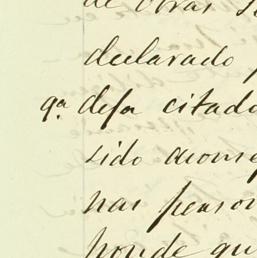 de obras s
declarado
qª defa citado
sido aconse
nas person
ponde qu